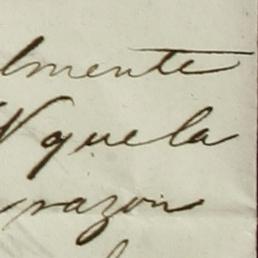 lmente
V que la
razon